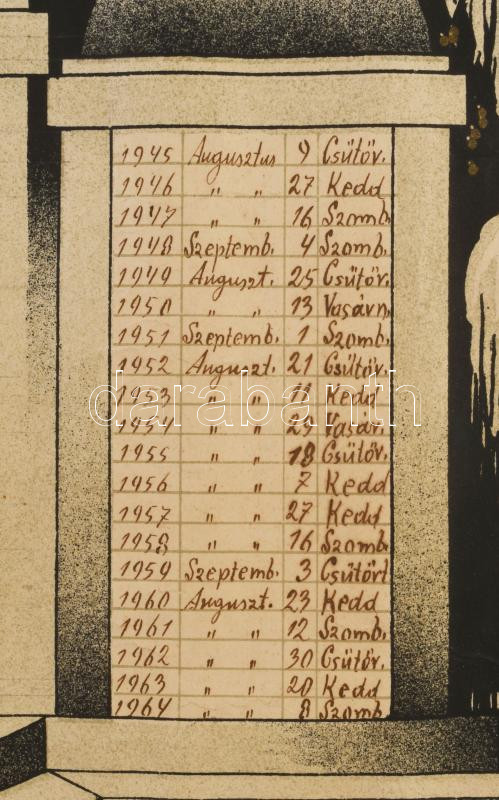 1945 Augusztus 9 Csütöv.
1946 " " 27 Kedd
1947 " " 16 Szomb.
1948 Szeptemb. 4 Szomb.
1949 Auguszt. 25 Csütöv.
1950 " " 13 Vasárn.
1951 Szeptemb. 1 Szomb.
1952 Auguszt. 21 Csütöv.
1953 " " 11 Kedd
darabanth
1954 " " 29 Vasár.
1955 " " 18 Csütöv.
1956 " " 7 Kedd
1957 " " 27 Kedd
1958 " " 16 Szomb.
1959 Szeptemb. 3 Csütört
1960 Auguszt. 23 Kedd
1961 " " 12 Szomb.
1962 " " 30 Csütöv.
1963 " " 20 Kedd
1964 " " 8 Szomb.